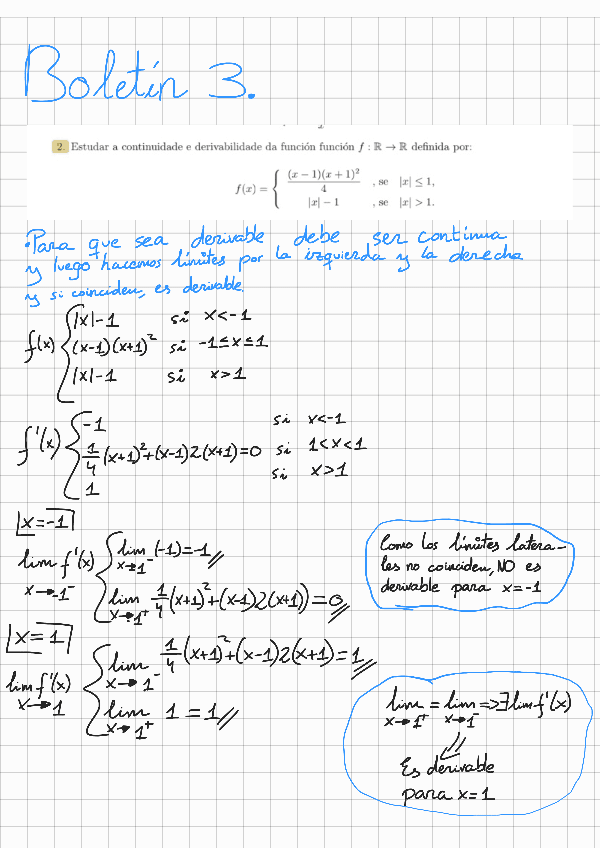 Boletín 3.
2. Estudar a continuidade e derivabilidade da función función f : ℝ → ℝ definida por:
f(x) = { (x − 1)(x + 1)² / 4 , se |x| ≤ 1,
|x| − 1 , se |x| > 1.
•Para que sea derivable debe ser continua
y luego hacemos límites por la izquierda y la derecha
y si coinciden, es derivable.
f(x) { |x|-1 si x<-1
(x-1)(x+1)² si -1≤x≤1
|x|-1 si x>1
f'(x) { -1 si x<-1
1/4 (x+1)²+(x-1)2(x+1)=0 si 1<x<1
1 si x>1
|x=-1|
lim f'(x) x→-1⁻ { lim x→1⁻ (-1)=-1//
lim x→1⁺ 1/4 (x+1)²+(x-1)2(x+1))=0//
Como los límites latera-
les no coinciden, NO es
derivable para x=-1
|x=1|
lim f'(x) x→1 { lim x→1⁻ 1/4 (x+1)²+(x-1)2(x+1)=1//
lim x→1⁺ 1=1//
lim x→1⁺ = lim x→1⁻ =>∃lim f'(x)
Es derivable
para x=1